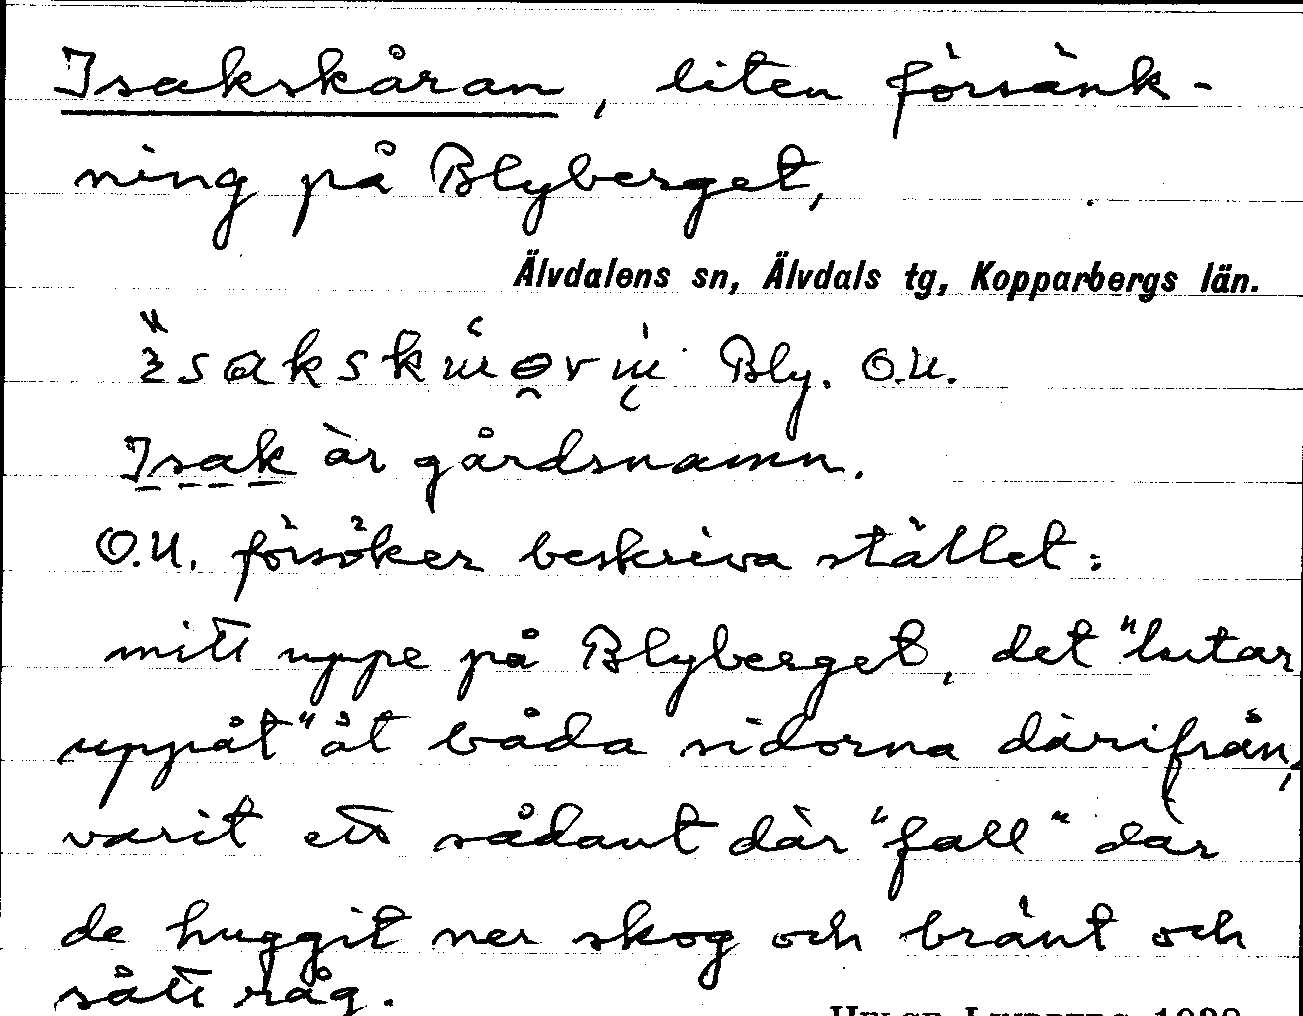 Isakskåran, liten försänk-
ning på Blyberget,
Älvdalens sn, Älvdals tg, Kopparbergs län.
Bly. O.U.
Isak är gårdsnamn.
O.U. försöker beskriva stället:
mitt uppe på Blyberget, det "lutar
uppåt" åt båda sidorna därifrån,
varit ett sådant där "fall" där
de huggit ner skog och bränt och
sått råg.